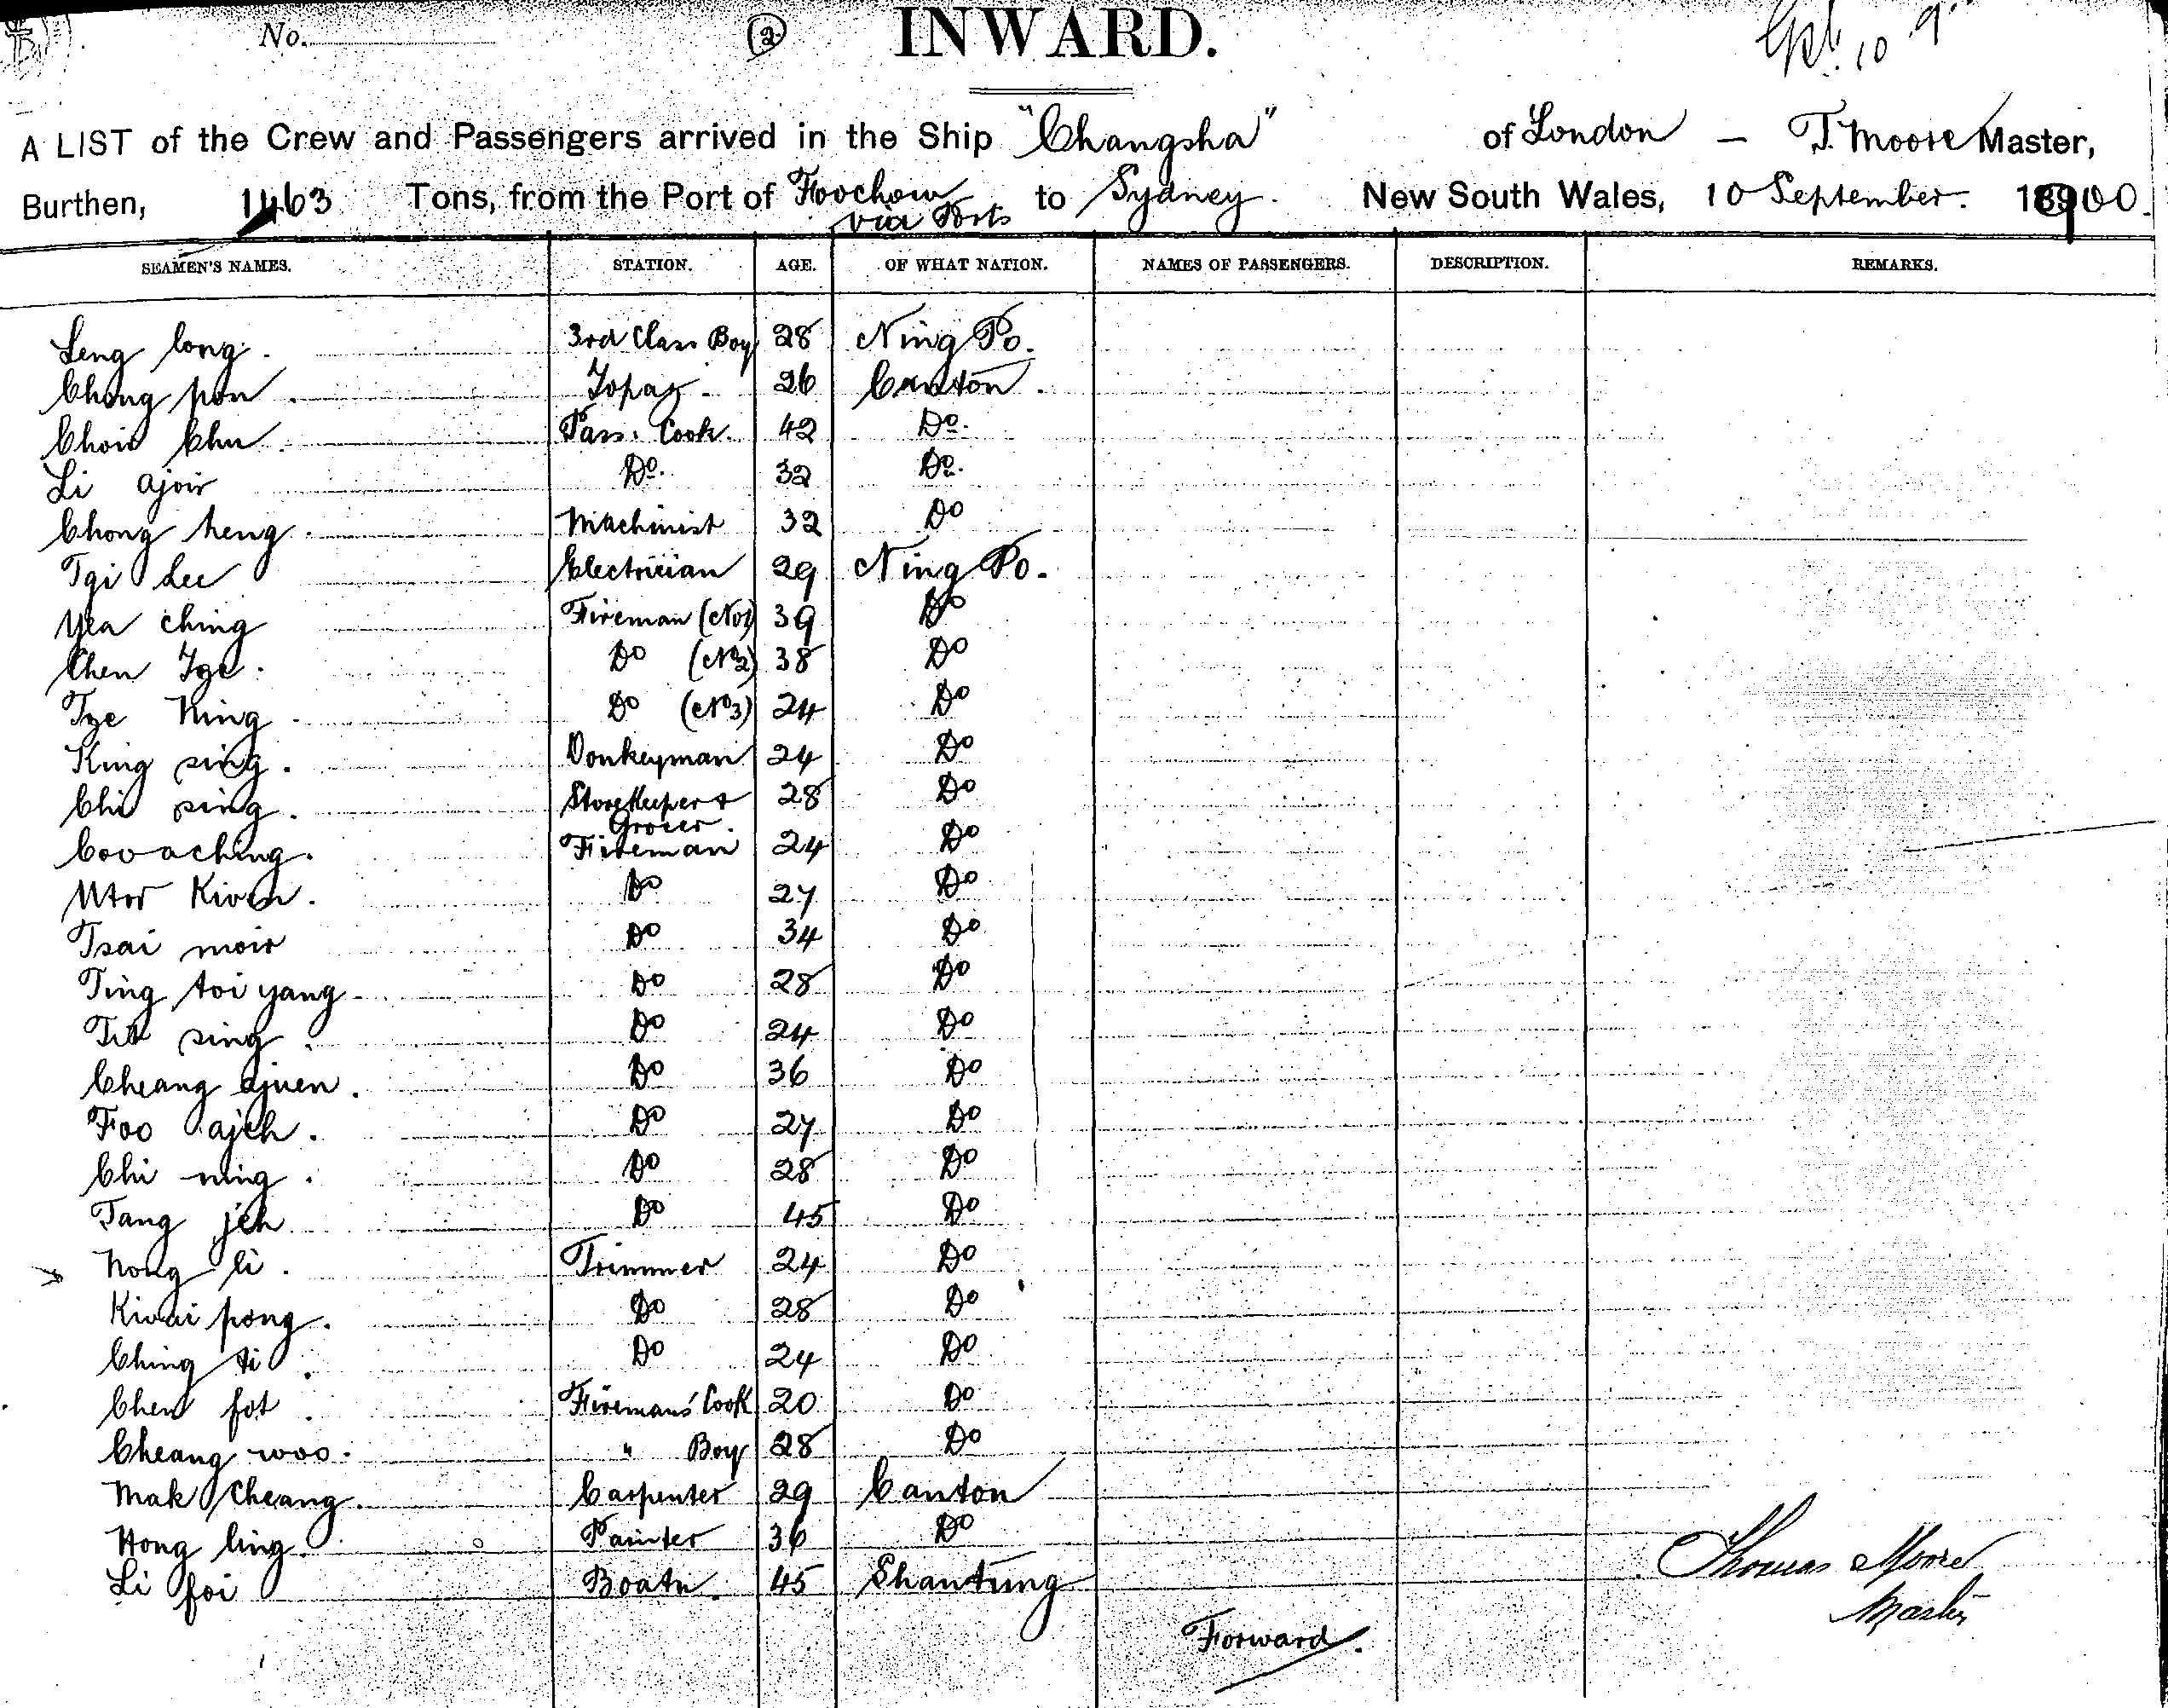 No. 2 INWARD.
A LIST of the Crew and Passengers arrived in the Ship "Changsha" of London — T. Moore Master,
Burthen, 1463 Tons, from the Port of Foochow via Ports to Sydney. New South Wales, 10 September. 1900.
SEAMEN'S NAMES. STATION. AGE. OF WHAT NATION. NAMES OF PASSENGERS. DESCRIPTION. REMARKS.
Leng long. 3rd Class Boy 28 Ning Po.
Chong pon. Topaz. 26 Canton.
Chow Chu. Pass. Cook. 42 Do.
Li ajow Do. 32 Do.
Chong heng. Machinist 32 Do
Tgi Lee Electrician 29 Ning Po.
Yea ching Fireman (No1) 39 Do
Chen Tge. Do (No2) 38 Do
Tze King. Do (No3) 24 Do
King sing. Donkeyman 24 Do
Chi sing. Storekeeper & 28 Do
Grocer.
Covaching. Fireman 24 Do
Kiven. Do 27 Do
Tsai mow Do 34 Do
Ting toi yang. Do 28 Do
sing. Do 24 Do
Cheang ajuen. Do 36 Do
Foo ajeh. Do 27 Do
Chi ning. Do 28 Do
Tang jeh Do 45 Do
Nong li. Trimmer 24 Do
Kiwai pong. Do 28 Do
Ching ti. Do 24 Do
Chen fot. Firemans' Cook 20 Do
Cheang woo. " Boy 28 Do
Mak Cheang. Carpenter 29 Canton
Hong ling. Painter 36 Do
Li foi Boatn. 45 Shantung
Thomas Moore
Master
Forward.